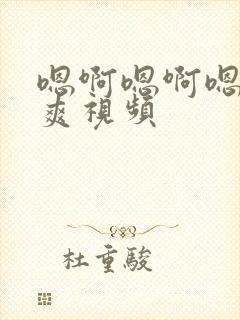 嗯啊嗯啊嗯
爽視頻
杜重駿